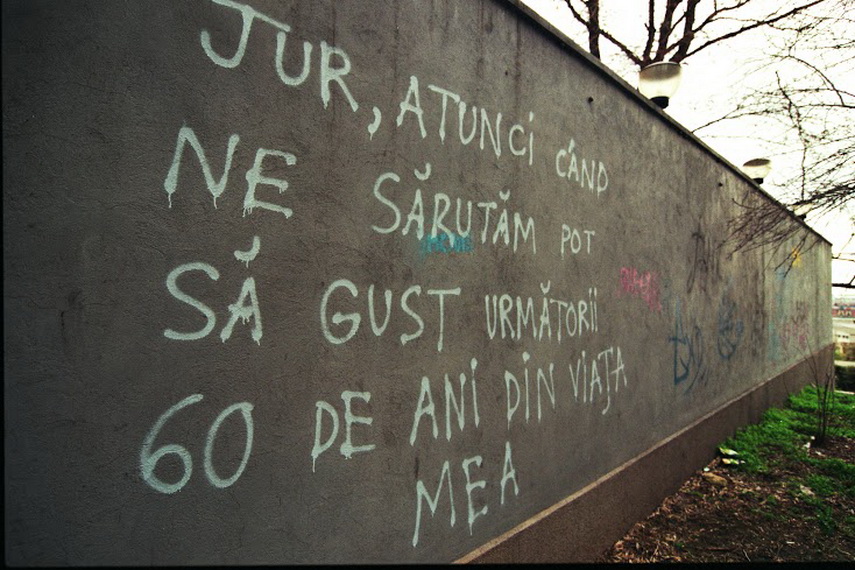 JUR, ATUNCI CÂND
NE SĂRUTĂM POT
SĂ GUST URMĂTORII
60 DE ANI DIN VIAȚA
MEA